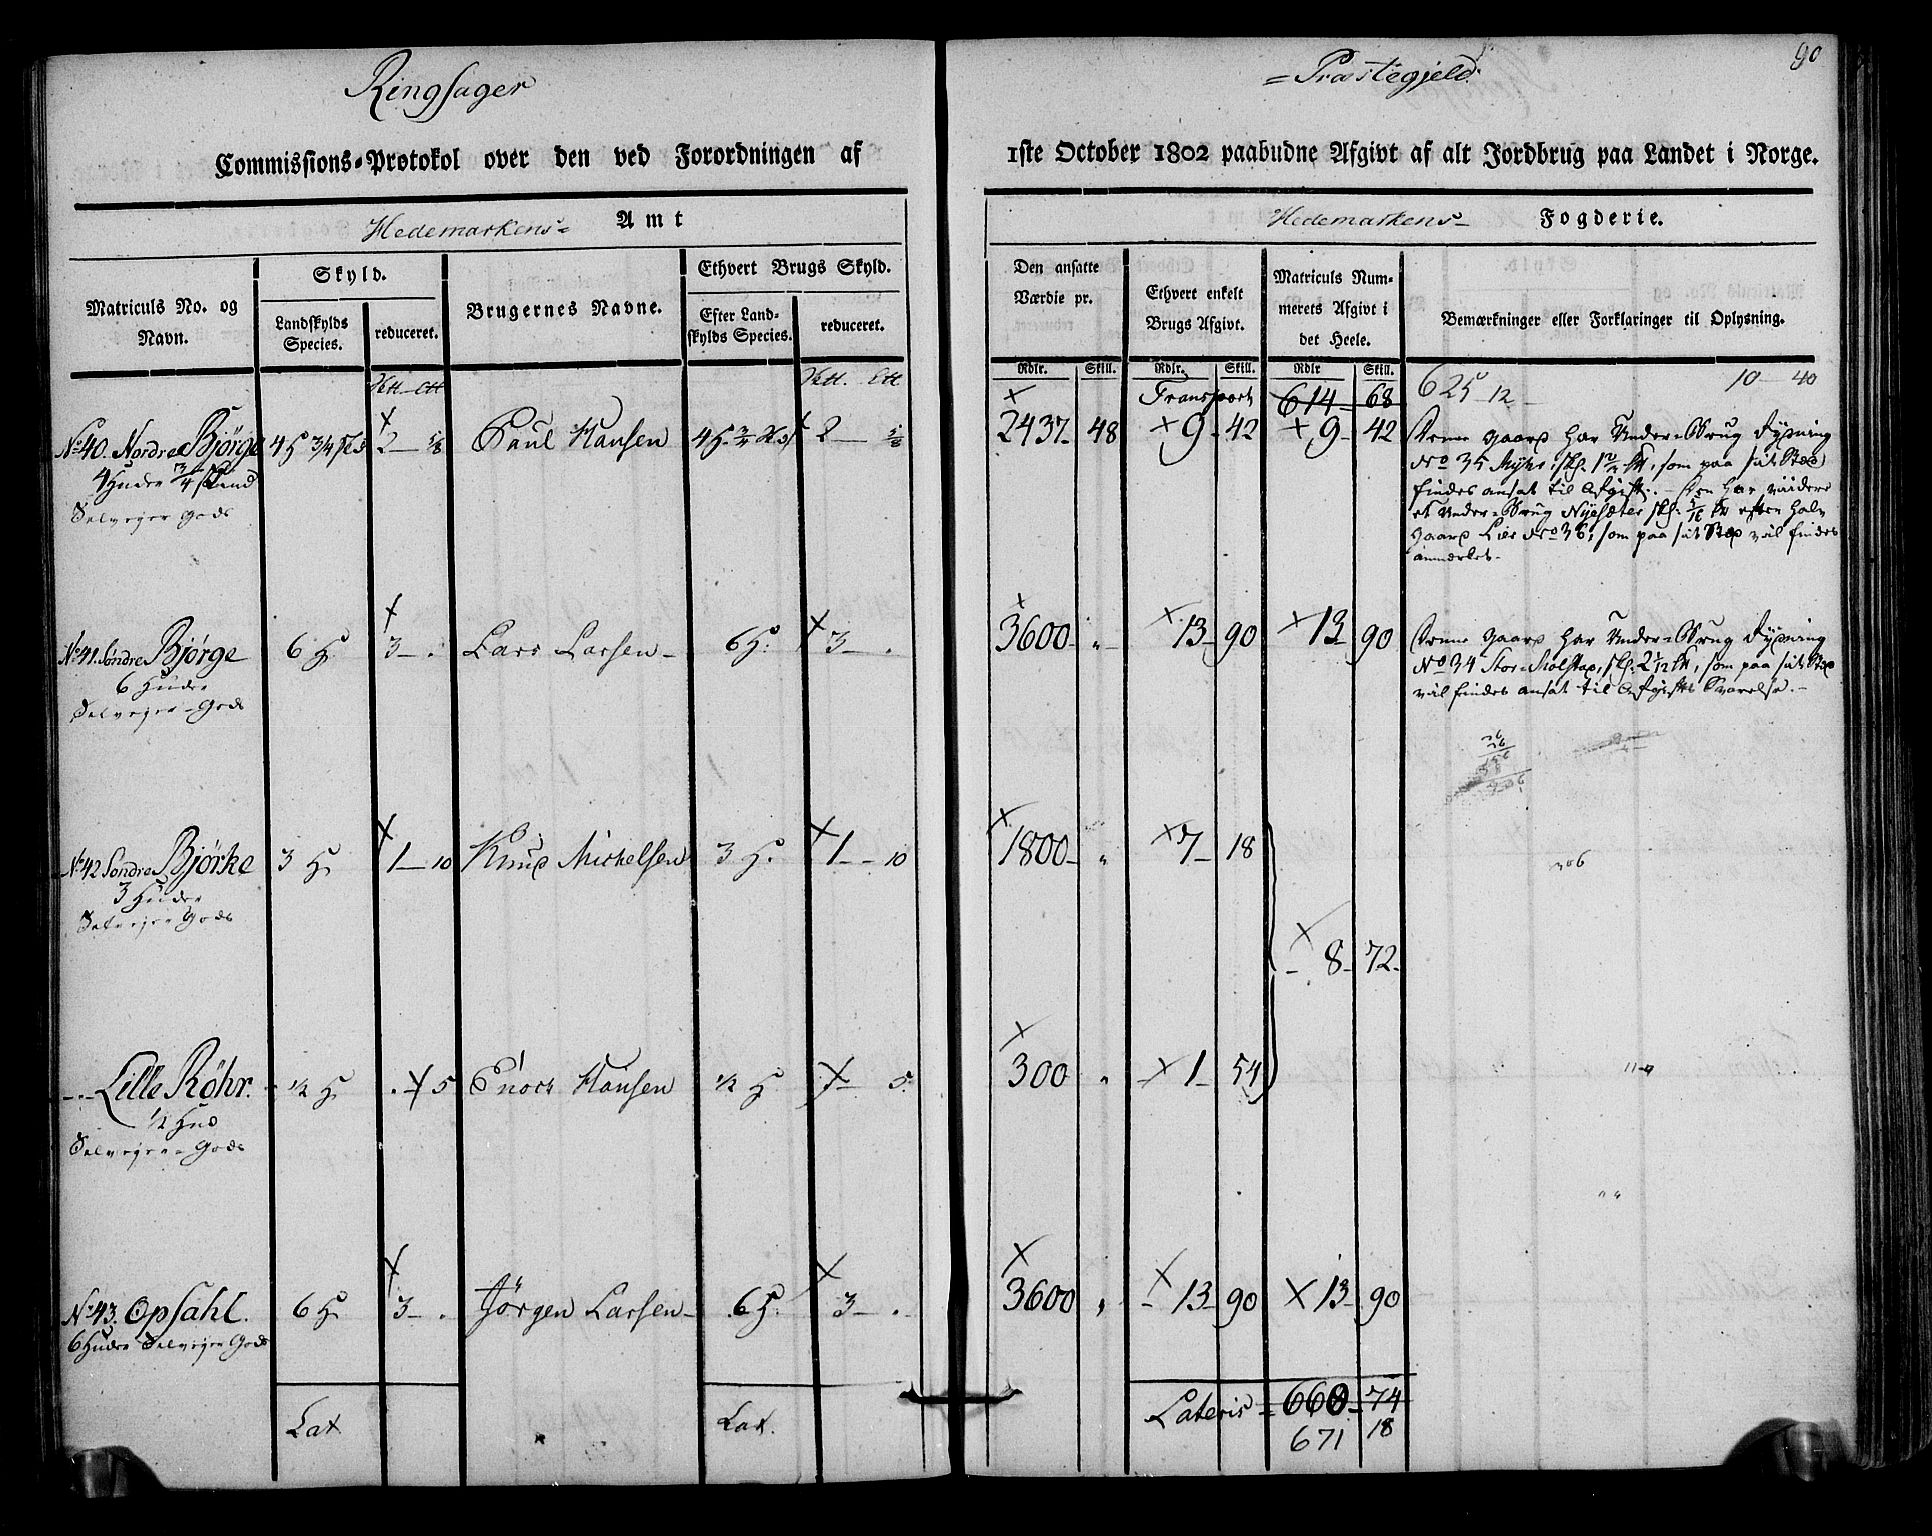 Ringsager
= Præstegjeld.
90
Commissions-Protokol over den ved Forordningen af
1ste October 1802 paabudne Afgivt af alt Jordbrug paa Landet i Norge.
Hedemarkens= Amt
Hedemarkens- Fogderie.
Matriculs No. og Navn.
Skyld.
Landskylds Species.
reduceret.
Brugernes Navne.
Ethvert Brugs Skyld.
Efter Landskylds Species.
reduceret.
Den ansatte Værdie pr.
Ethvert enkelt Brugs Afgivt.
Matriculs Nummerets Afgivt i det Heele.
Bemærkninger eller Forklaringer til Oplysning.
Rdlr. Skill. Rdlr. Skill. Rdlr Skill.
Transport 614 68 625 - 12 - 10 - 40
No 40. Nordre Bjørge 4 H 3/4 Skd 2 - 5/8 Paul Hansen 2 - 5/8 2437 - 48 × 9 - 42 × 9 - 42
4 Huder 3/4 Skind
Selveyer Gods
Denne Gaard har Under-Brug Dypning
No 35 som paa sit Sted
findes ansat til Afgift. - Den har viidere
et Under-Brug Nyesæter efter halv
Gaard Lier No 36, som paa sit Sted vil findes
anmerket.
No 41. Søndre Bjørge 6 H 3 - . Lars Larsen - 6 H. × 3 - . 3600 - „ - × 13 - 90 × 13 90
6 Huder
Selveyer-Gods
Denne Gaard har Under-Brug Dypning
No 34 Stor- skl. 2 1/12 som paa sit Sted
vil findes ansat til Afgifts Svarelse. -
No 42 Søndre Bjørke 3 H 1 - 10 Knud Michelsen 3 H. × 1 - 10 1800 - „ × 7 - 18
3 Huder
Selveyer Gods
206
× - 8 - 72 -
- - - Lille Røhr. - 1/2 H . 5 Enock Hansen 1/2 H 5. 300 „ × 1 - 54
1/2 Hud
Selveyer-Gods
No 43. Opsahl. 6 H 3 - . Jørgen Larsen - 6 H. 3 - . 3600 „ × - 13 - 90 × 13 - 90
6 Huder Selveyer Gods
Lat
Lat.
Lateris = 660 - 74
671 18